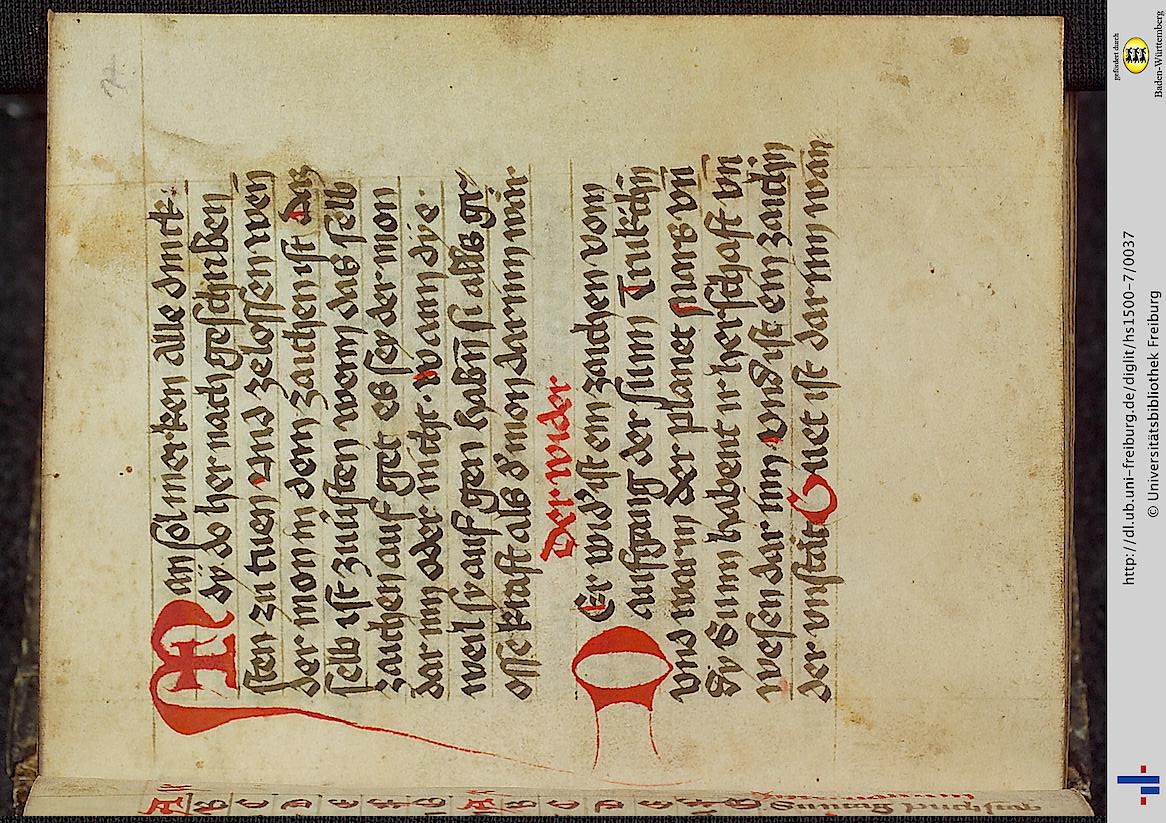 Man sol merken alle dinck
dÿ do her nach geschriben
sten zu tuen vnd ze lossen wen
der mon in dem zaichen ist Das
selb ist zu wissen wenn das selb
zaichen auf get es sey der mon
dar inn oder nicht. wann dÿe
weil sy auf gen habn si alls gr
osse kraft als d' mon dar inn wär
Der wider
Der wid' ist ein zaichen vom
aufgang der sunn Truken
vnd warm der planet mars vn
dy Sunn habent ir herschaft vn
wesen dar inn vnd ist ein zaichn
der vnstät Guet ist dar inn wan
A
b
c
D
e
f
g
A
b
c
D
e
f
g
Sunntag puchstab
http://dl.ub.uni-freiburg.de/diglit/hs1500-7/0037
© Universitätsbibliothek Freiburg
gefördert durch
Baden-Württemberg